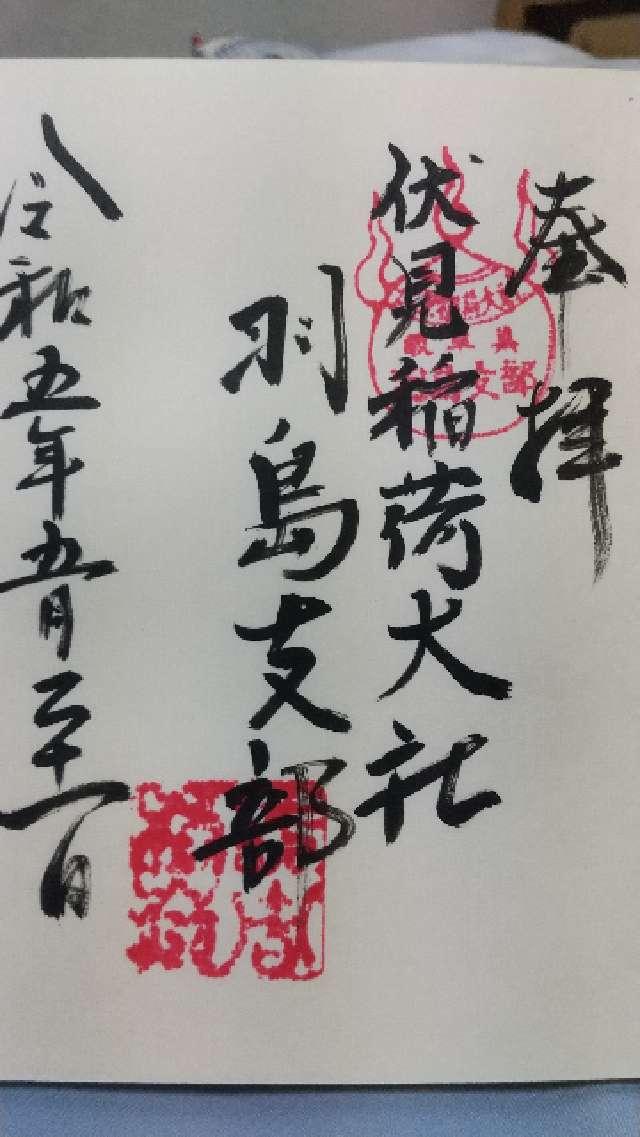 奉拝
伏見稲荷大社
羽島支部
令和五年五月二十一日